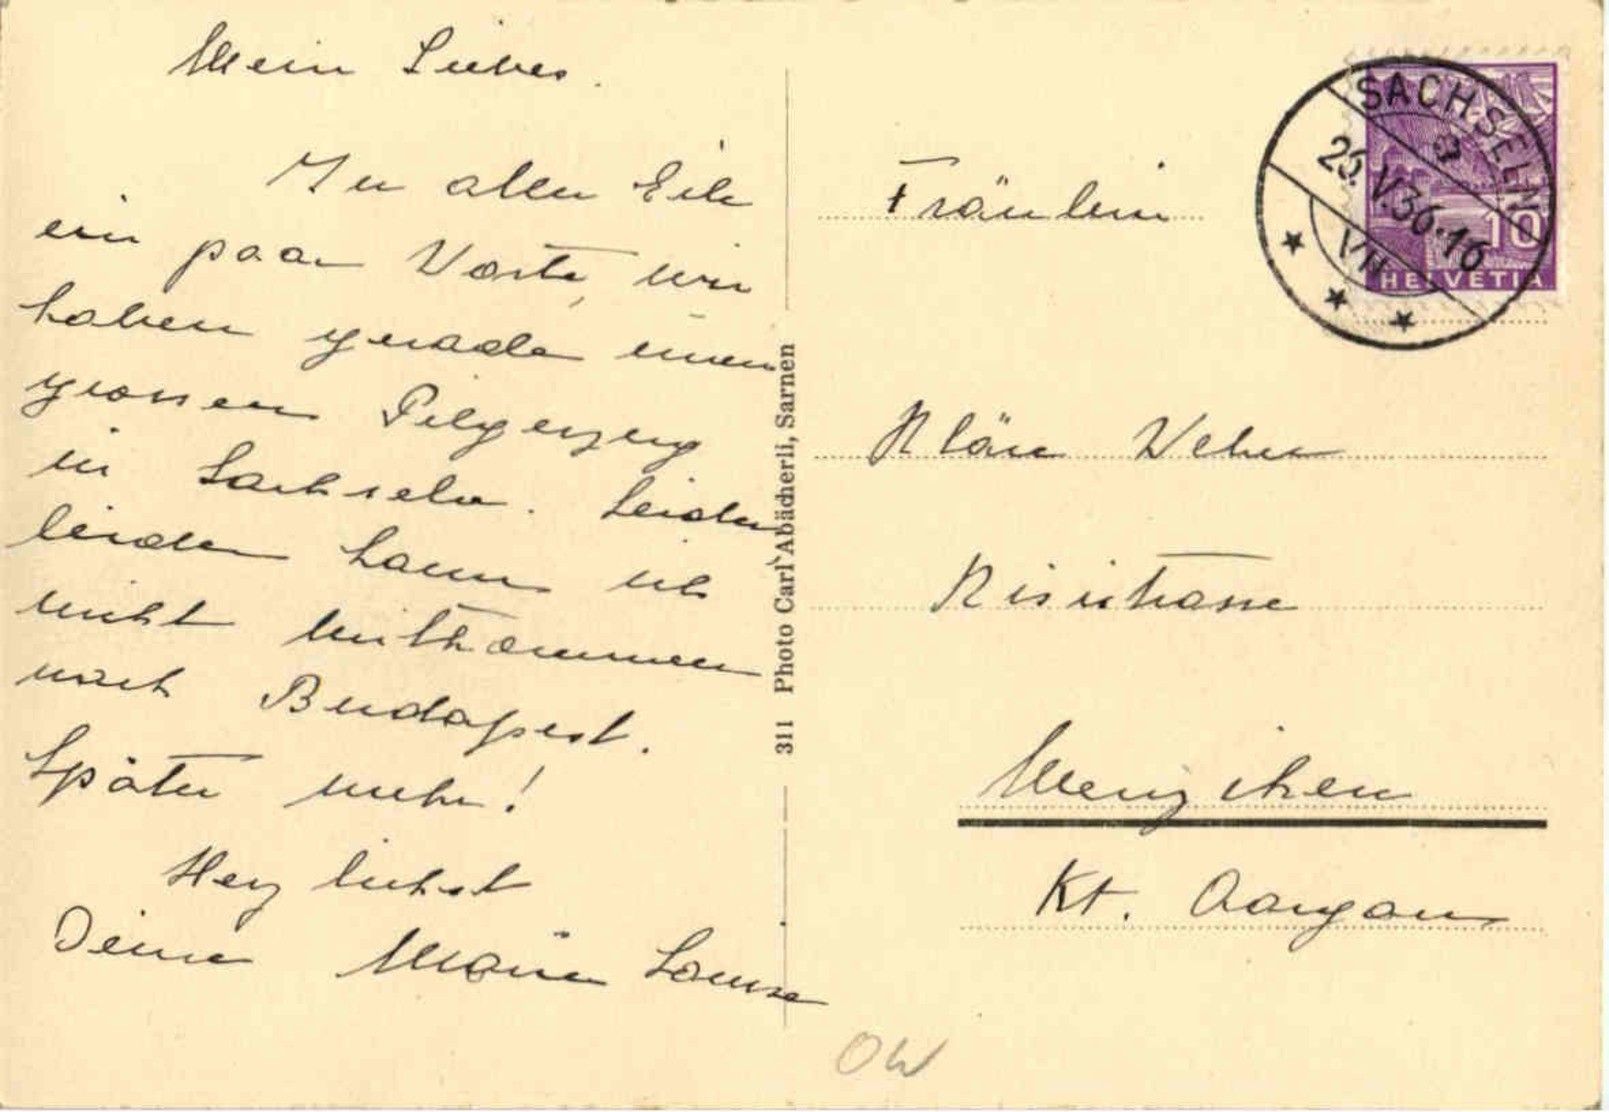 Mein Liebes.
In aller Eile
ein paar Worte, wir
haben gerade einen
grossen Pilgerzug
in Sachseln. Leider
leider kann ich
nicht mitkommen
nach Budapest.
Später mehr!
Herzlichst
Deine Marie Louise
311 Photo Carl Abächerli, Sarnen
SACHSELN
a
25.V.36.16
VII
10
HELVETIA
Fräulein
Kläre Weber
strasse
Menziken
Kt. Aargau
OW